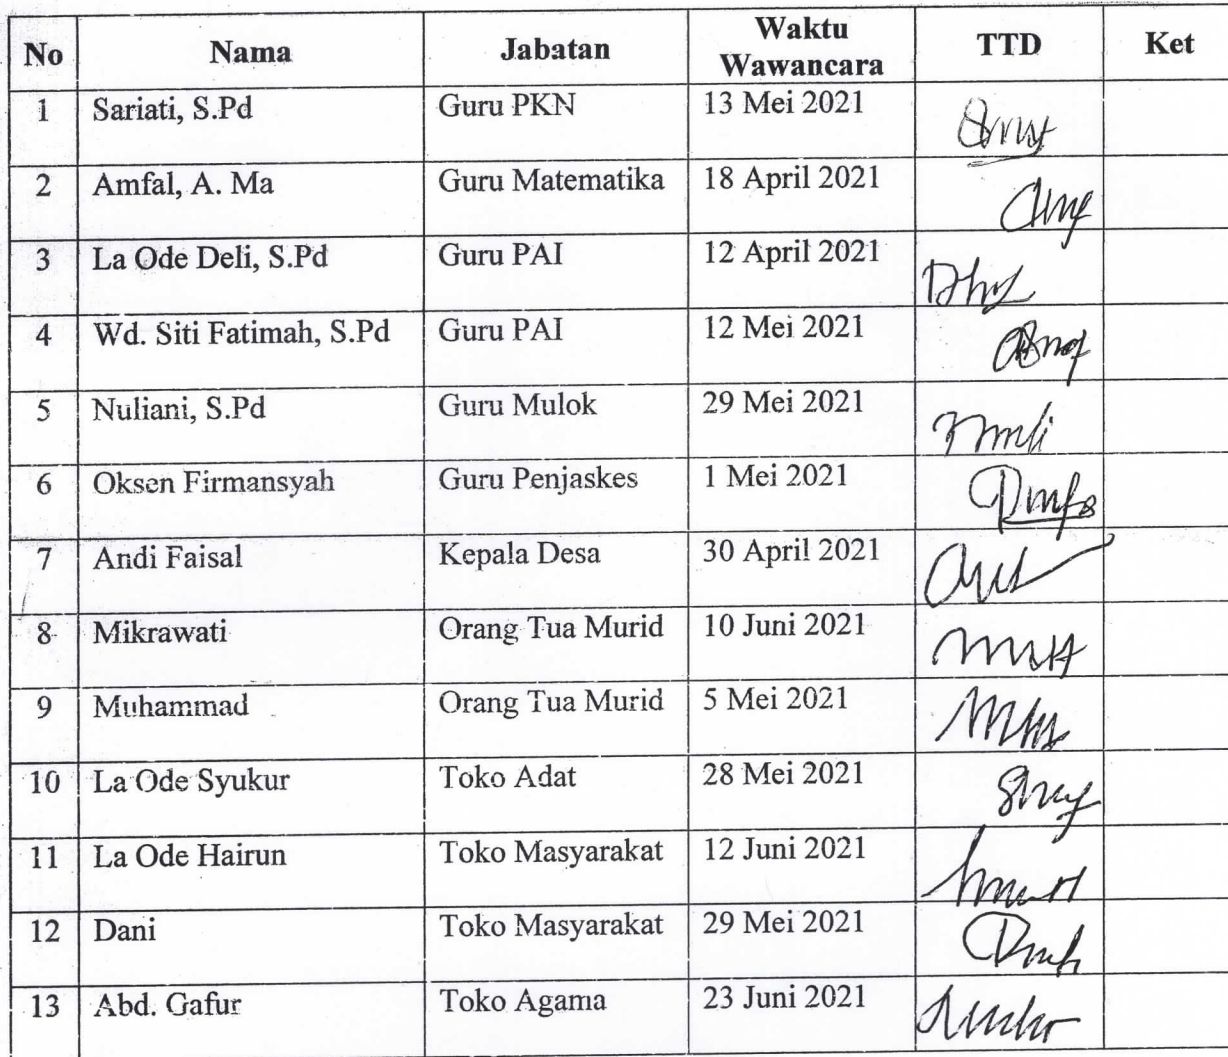 No Nama Jabatan Waktu Wawancara TTD Ket
1 Sariati, S.Pd Guru PKN 13 Mei 2021
2 Amfal, A. Ma Guru Matematika 18 April 2021
3 La Ode Deli, S.Pd Guru PAI 12 April 2021
4 Wd. Siti Fatimah, S.Pd Guru PAI 12 Mei 2021
5 Nuliani, S.Pd Guru Mulok 29 Mei 2021
6 Oksen Firmansyah Guru Penjaskes 1 Mei 2021
7 Andi Faisal Kepala Desa 30 April 2021
8 Mikrawati Orang Tua Murid 10 Juni 2021
9 Muhammad Orang Tua Murid 5 Mei 2021
10 La Ode Syukur Toko Adat 28 Mei 2021
11 La Ode Hairun Toko Masyarakat 12 Juni 2021
12 Dani Toko Masyarakat 29 Mei 2021
13 Abd. Gafur Toko Agama 23 Juni 2021